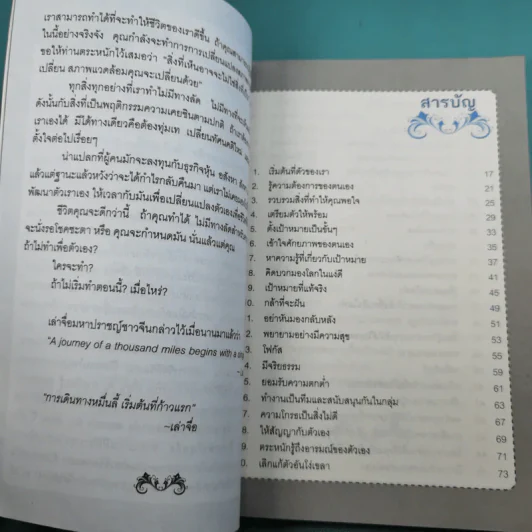 เราสามารถทำได้ที่จะทำให้ชีวิตของเราดีขึ้น ถ้าคุณ
ในนี้อย่างจริงจัง คุณกำลังจะทำการการเปลี่ยนแปลง
ขอให้ท่านตระหนักไว้เสมอว่า "สิ่งที่เห็นอาจจะไม่ใช่
เปลี่ยน สภาพแวดล้อมคุณจะเปลี่ยนด้วย"
ทุกสิ่งทุกอย่างที่เราทำไม่มีทางลัด
ดังนั้นกับสิ่งที่เป็นพฤติกรรมความเคยชินตามปกติ
เราเองได้ มีได้ทางเดียวคือต้องทุ่มเท เปลี่ยนทัศนคติใหม่
ตั้งใจต่อไปเรื่อยๆ
น่าแปลกที่ผู้คนมักจะลงทุนกับธุรกิจหุ้น อสังหา
แล้วแต่ฐานะแล้วหวังว่าจะได้กำไรกลับคืนมา แต่เรา
พัฒนาตัวเราเอง ให้เวลากับมันเพื่อเปลี่ยนแปลงตัวเอง
ชีวิตคุณจะดีกว่านี้ ถ้าคุณทำได้ ไม่มีทางลัด
จะนั่งรอโชคชะตา หรือ คุณจะกำหนดมัน นั่นแล้วแต่คุณ
ถ้าไม่ทำเพื่อตัวเอง?
ใครจะทำ?
ถ้าไม่เริ่มทำตอนนี้? เมื่อไหร่?
เล่าจื่อมหาปราชญ์ชาวจีนกล่าวไว้เมื่อนานมาแล้วว่า
"A journey of a thousand miles begins with a
"การเดินทางหมื่นลี้ เริ่มต้นที่ก้าวแรก"
–เล่าจื่อ
สารบัญ
1. เริ่มต้นที่ตัวของเรา 17
2. รู้ความต้องการของตนเอง 21
3. รวบรวมสิ่งที่ทำให้คุณพอใจ 25
4. เตรียมตัวให้พร้อม 29
5. ตั้งเป้าหมายเป็นขั้นๆ 31
6. เข้าใจศักยภาพของตนเอง 33
7. หาความรู้ที่เกี่ยวกับเป้าหมาย 37
8. คิดบวกมองโลกในแง่ดี 41
9. เป้าหมายที่แท้จริง 45
0. กล้าที่จะฝัน 49
1. อย่าหันมองกลับหลัง 51
2. พยายามอย่างมีความสุข 53
3. โฟกัส 55
4. มีจริยธรรม 57
5. ยอมรับความตกต่ำ 61
6. ทำงานเป็นทีมและสนับสนุนกันในกลุ่ม 63
7. ความโกรธเป็นสิ่งไม่ดี 67
8. ให้สัญญากับตัวเอง 69
9. ตระหนักรู้ถึงอารมณ์ของตัวเอง 71
0. เลิกแก้ตัวอันโง่เขลา 73